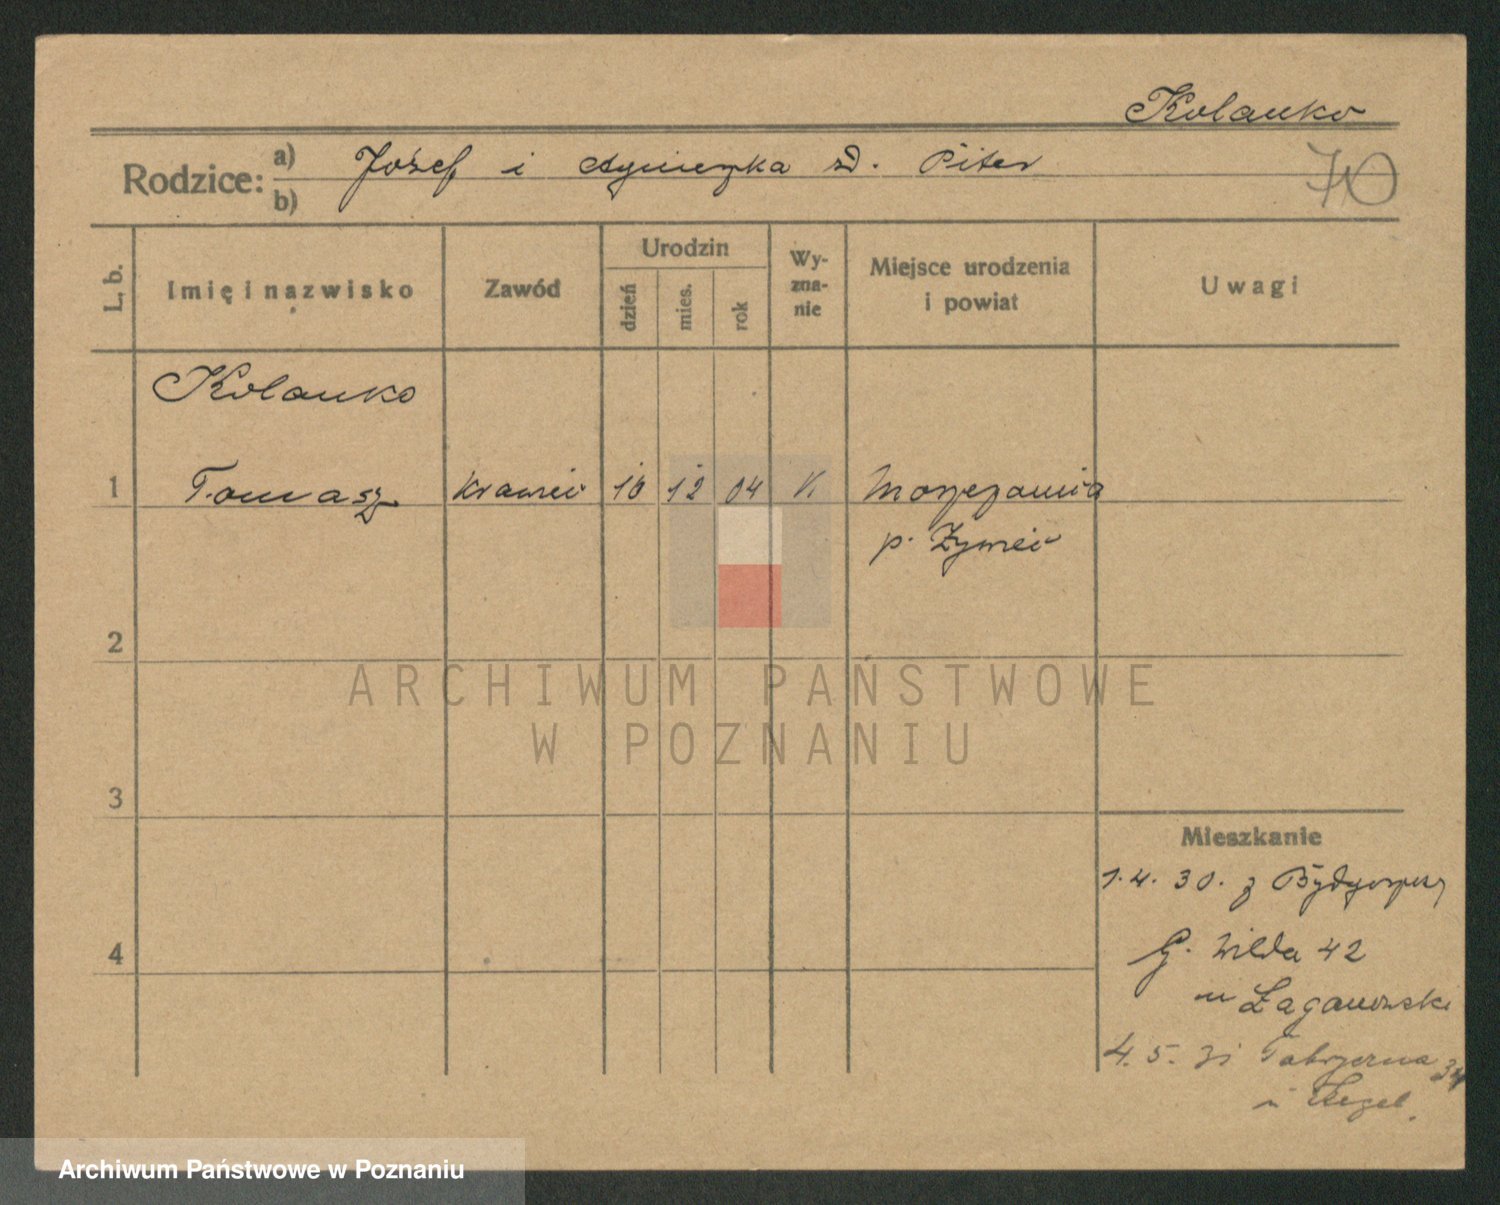 Kolanko
Rodzice: a) Józef i Agnieszka zd. Piter
b)
70
L. b.
Imię i nazwisko
Zawód
Urodzin
dzień
mies.
rok
Wy-
zna-
nie
Miejsce urodzenia
i powiat
Uwagi
Kolanko
1 Tomasz krawiec 10 12 04 K
p. Żywiec
2
ARCHIWUM PAŃSTWOWE
W POZNANIU
3
Mieszkanie
1.4.30. z Bydgoszczy
4
G. Wilda 42
Łaganowski
4.5.31 Fabryczna 34
Archiwum Państwowe w Poznaniu